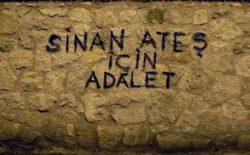 SİNAN ATEŞ
İÇİN
ADALET